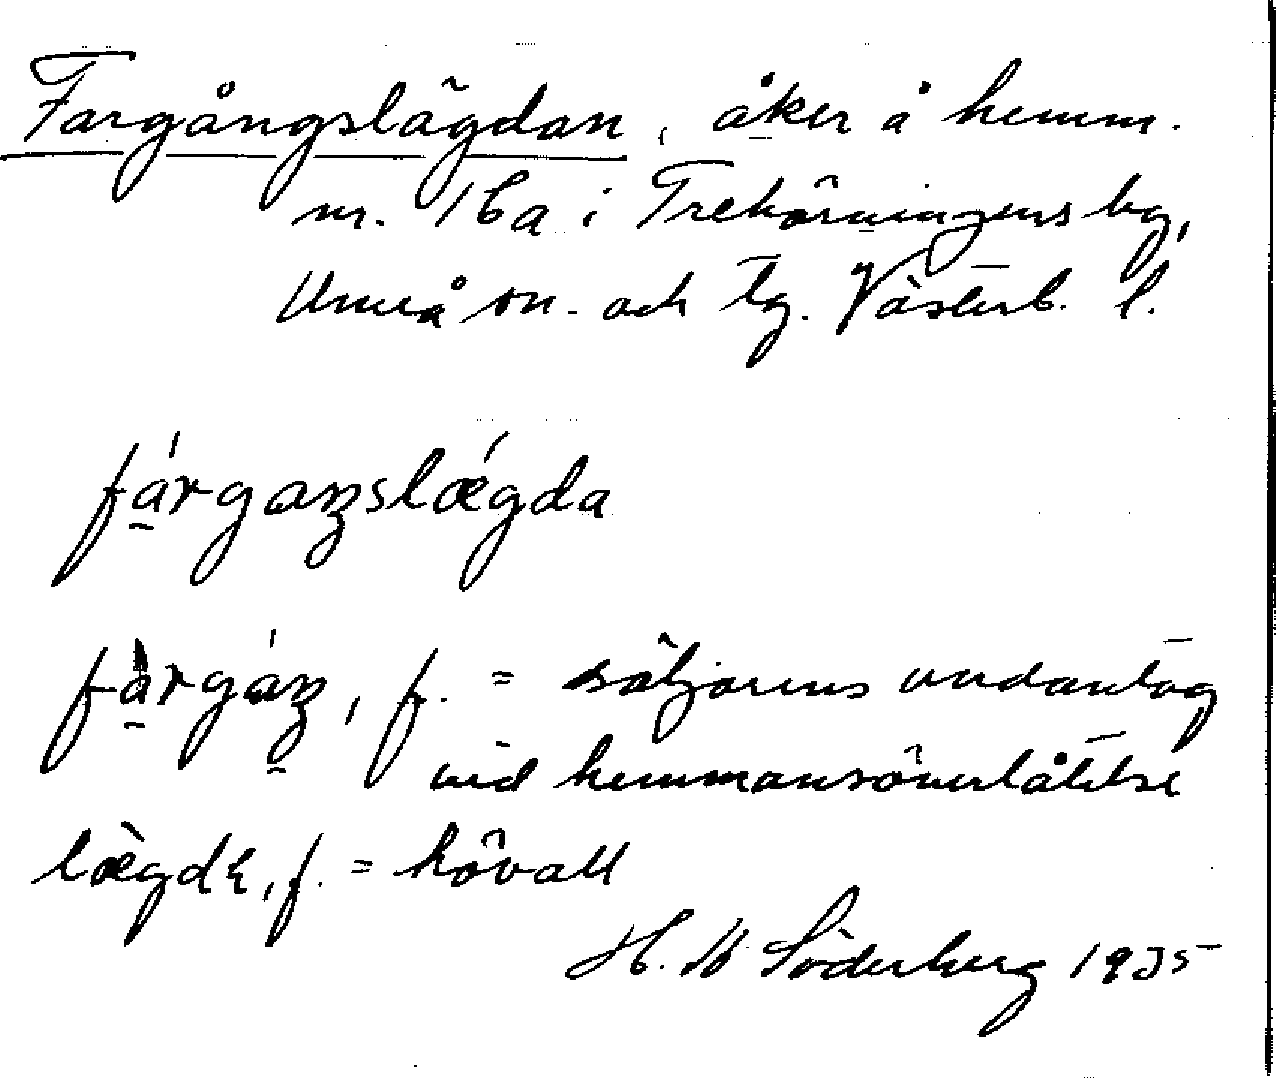 Fargångslägdan, åker å hemm.
nr. 16a i Trehörningens by,
Umeå sn. och tg. Västerb. l.
fárgaŋslǽgda
fàrgáŋ, f. = säljarens undantag
vid hemmansöverlåtelse
lægdɐ, f. = hövall
H. W Söderberg 1935